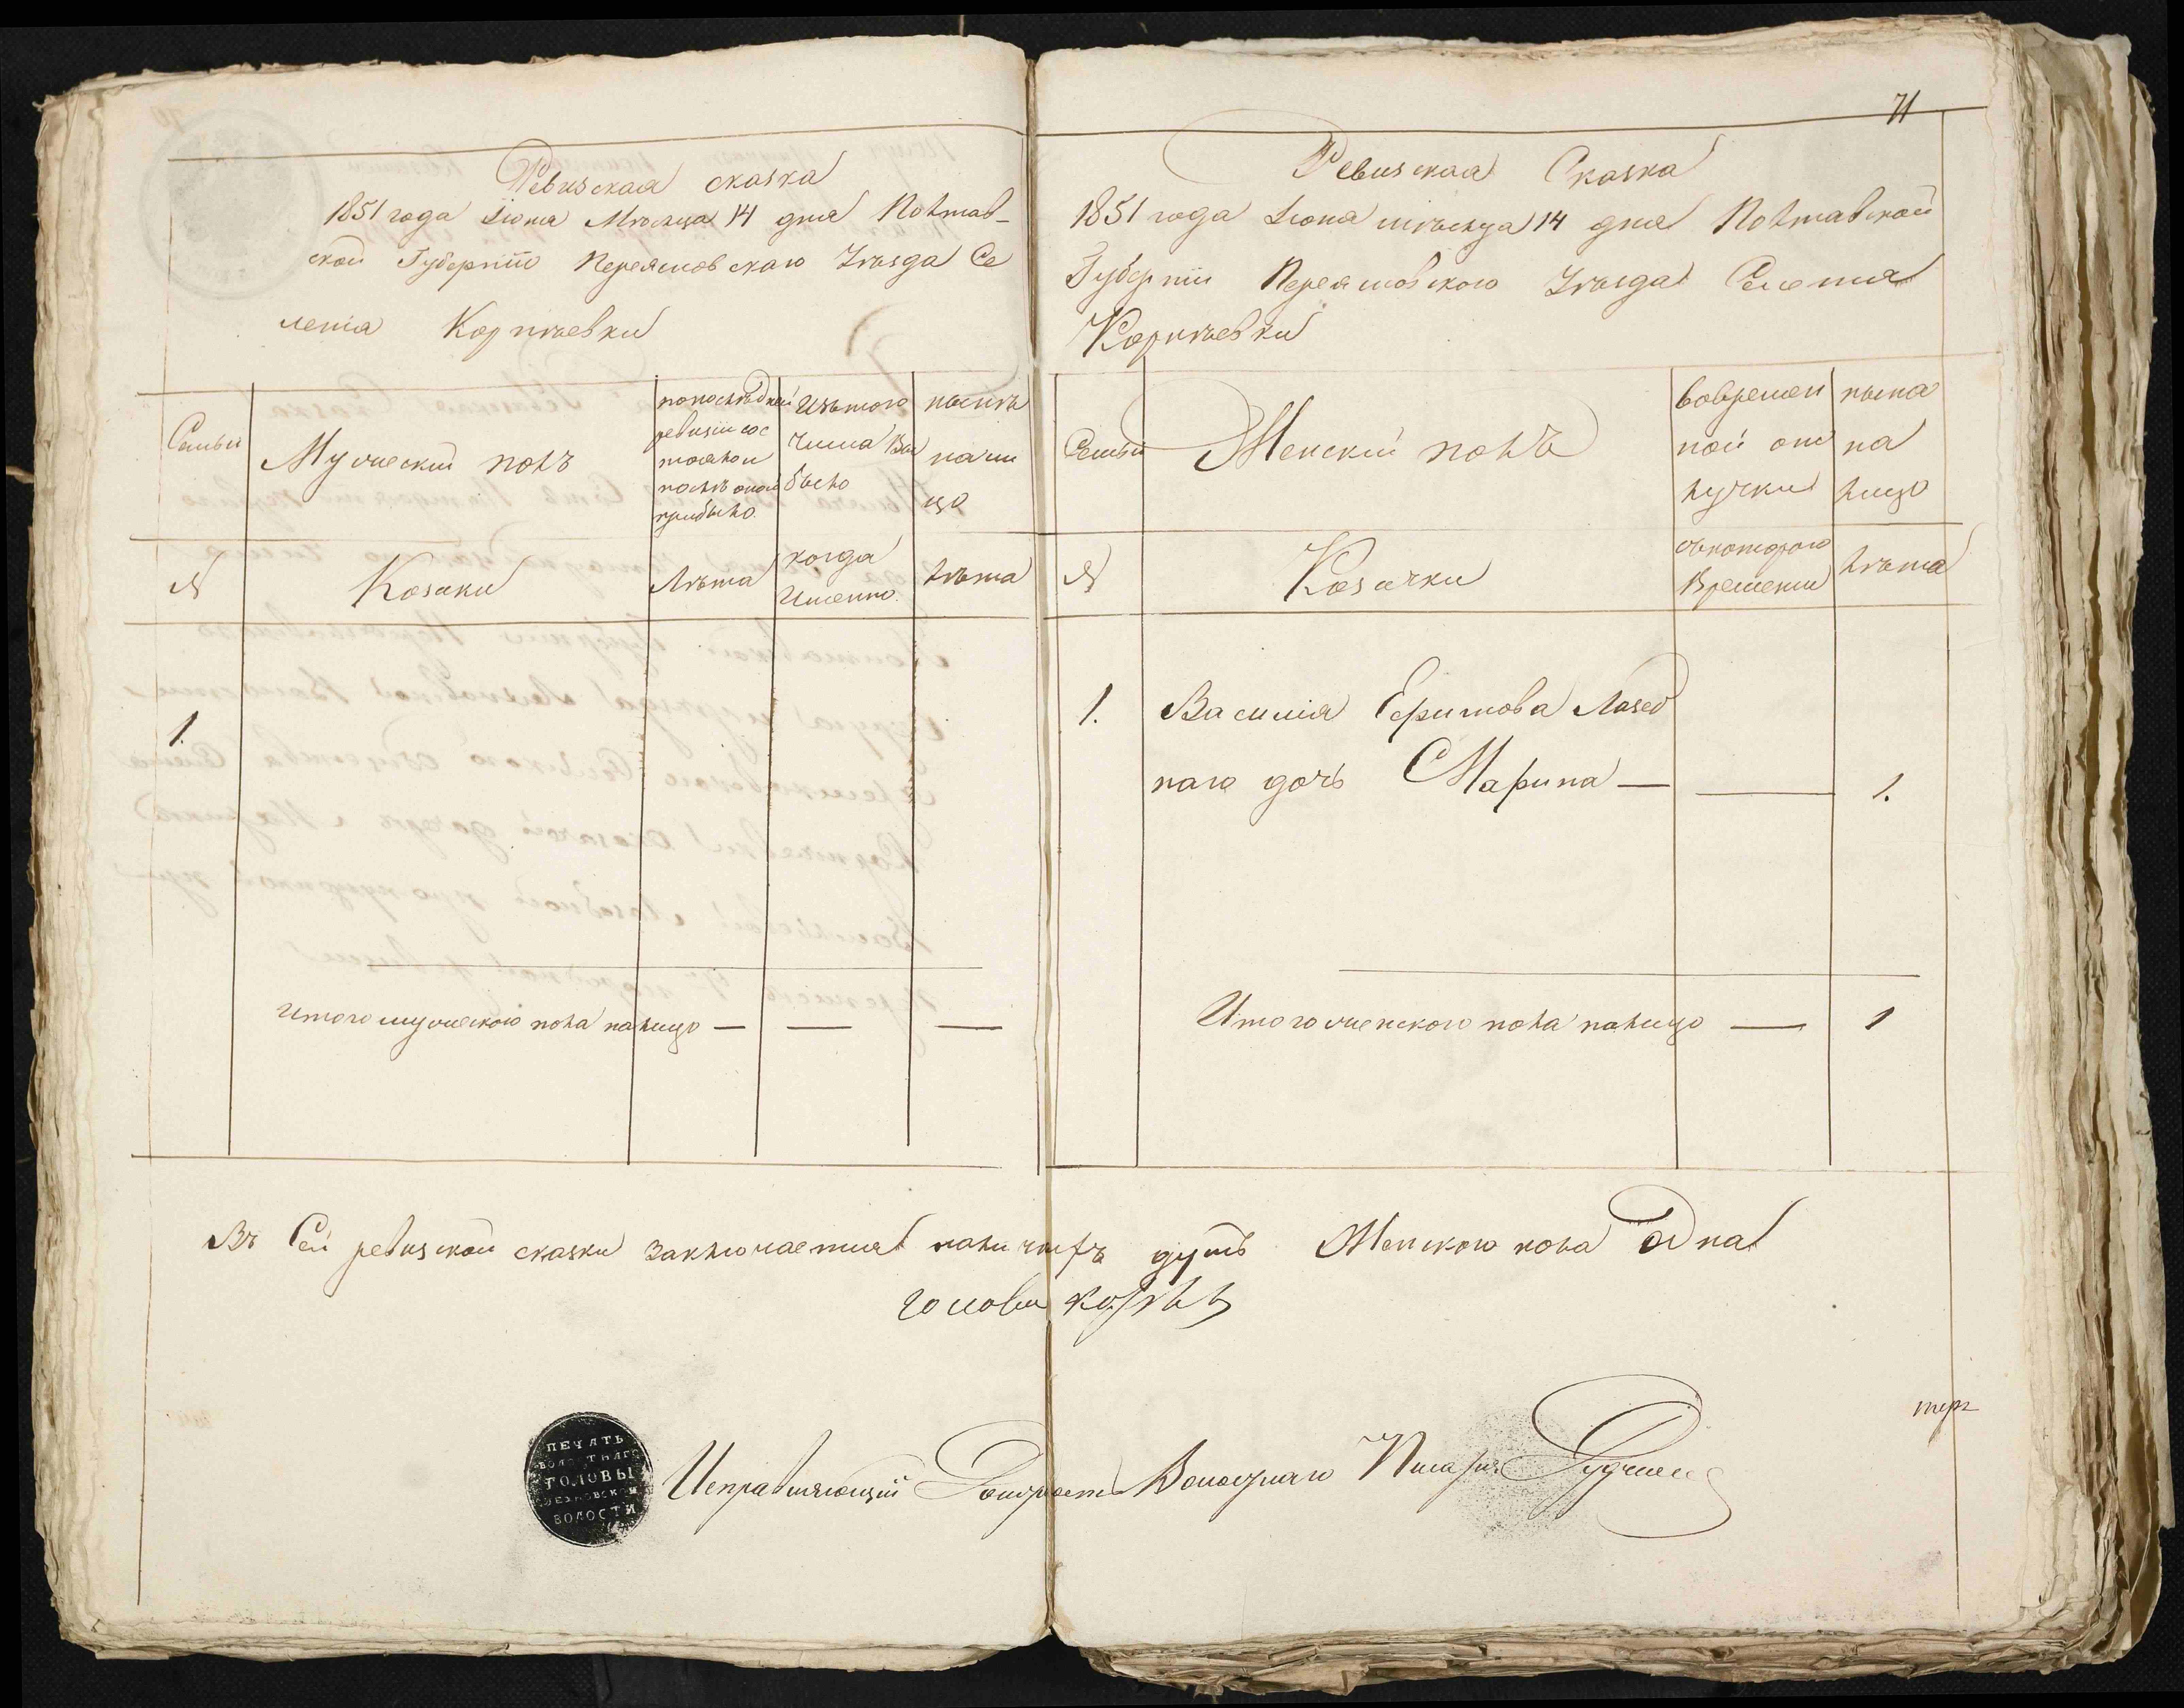 71
Ревизская сказка
1851 года Іюня Мѣсяца 14 дня Полтав-
ской Губерніи Переяславскаго Уѣзда Се
ленія Корнѣевки
Семьи
Мужеский полъ
попослѣдней ревизіи сос тояло и послѣ оной прибыло.
Изътого числа Вы было
нынѣ на ли цо
№
Козаки
Лѣта
когда Именно.
лѣта
1.
Итого мужеского пола налицо — — —
Ревизская Сказка
1851 года Іюня мѣсяца 14 дня Полтавской
Губерніи Переяславского Уѣзда Селения
Корнѣевки
Семьи
Женский полъ
вовремен ной от лучки
нына на лицо
№
Козачки
съкоторого Времени
лѣта
1. Василія Ефимова Лазеб
наго дочь Марина — — 1.
Итого женского пола налицо — 1
Въ Сей ревизской сказки заключается наличихъ душъ Женского пола Одна
головы
ПЕЧАТЬ
ВОЛОСТНАГО
ГОЛОВЫ
ВОЛОСТИ
Исправляющий Должность Волостнаго Писаря